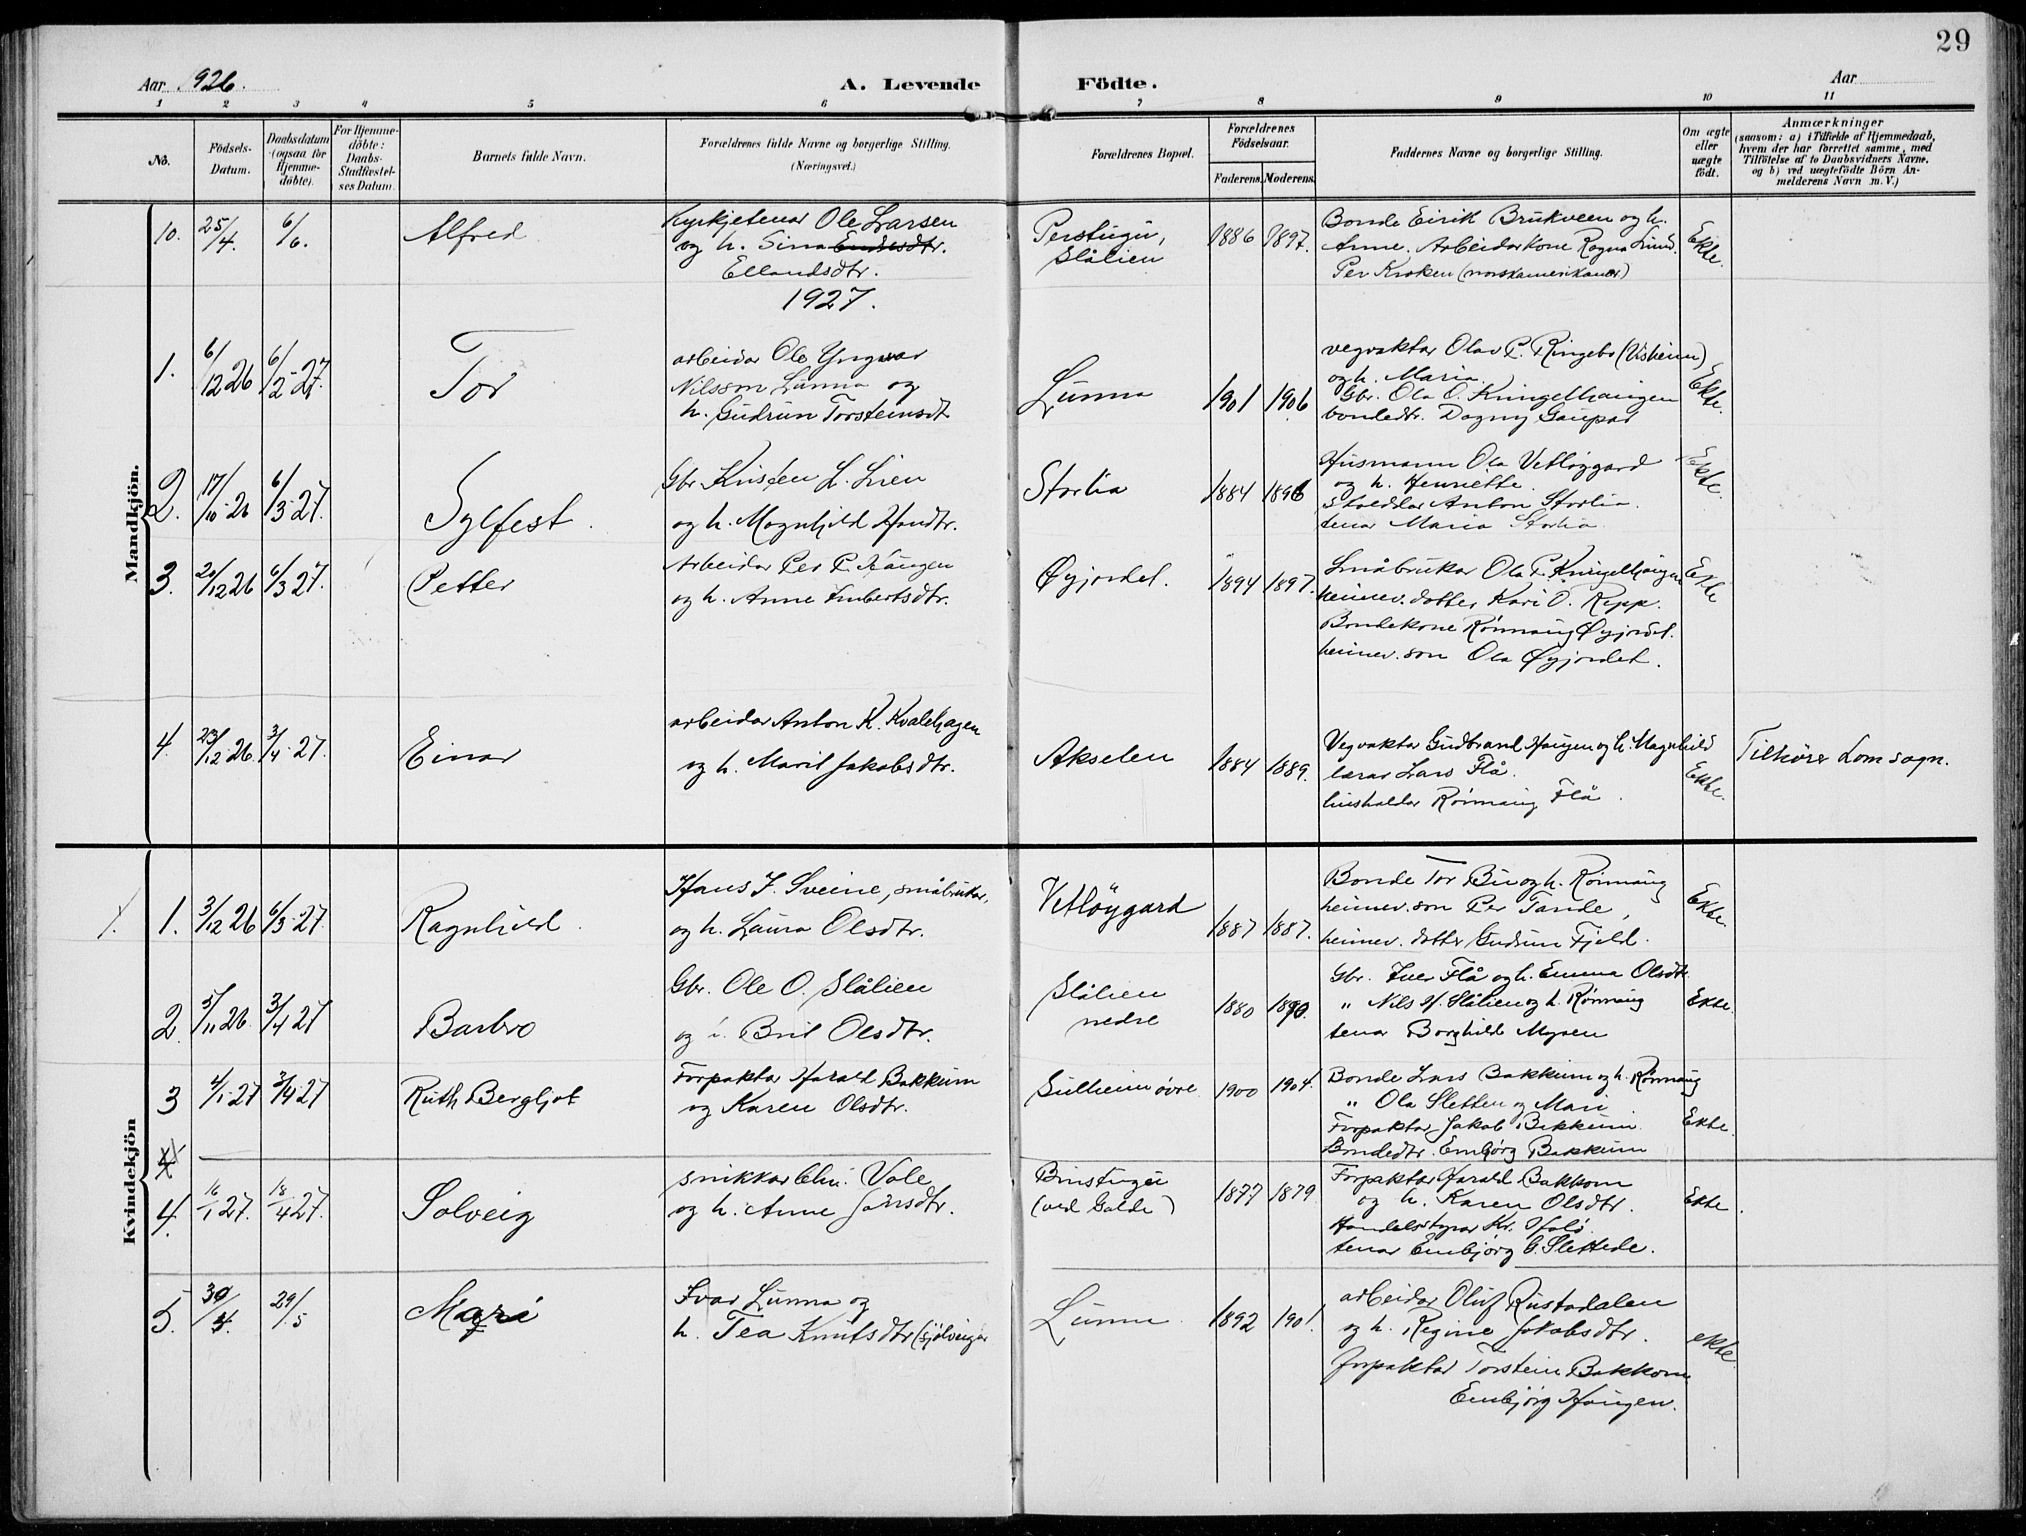 29
Aar 1926.
A. Levende Födte.
Aar
1 2 3 4 5 6 7 8 9 10 11
No.
Födsels-
Datum.
Daabsdatum
(ogsaa for
Hjemme-
döbte).
For Hjemme-
döbte:
Daabs-
Stadfæstel-
ses Datum.
Barnets fulde Navn.
Forældrenes fulde Navne og borgerlige Stilling.
(Næringsvei.)
Forældrenes Bopæl.
Forældrenes
Födselsaar.
Faderens. Moderens.
Faddernes Navne og borgerlige Stilling.
Om ægte
eller
uægte
födt.
Anmærkninger
(saasom: a) i Tilfælde af Hjemmedaab,
hvem der har forrettet samme, med
Tilföielse af to Daabsvidners Navne,
og b) ved uægtefödte Börn An-
melderens Navn m. V.)
Mandkjön.
10. 25/4. 6/6. Alfred
Kyrkjetenar Ole Larsen
og h. Sina Endresdtr.
Ellandsdtr.
Perstugu,
Slålien
1886 1897.
Bonde Eirik Brukveen og h.
Anne. Arbeidarkone Ragna Lund.
Per Kroken (norskamerikanar)
Ekte.
1927.
1. 6/12 26 6/2-27. Tor
arbeidar Ole Yngvar
Nilsson Lunna og
h. Gudrun Torsteinsdt.
Lunna
1901 1906
vegvaktar Olav P. Ringebo (Visheim)
og h. Maria.
Gbr. Ola O. Kungelhaugen
bondedtr. Dagny Gaupar
Ekte.
2. 17/10-26 6/3-27. Sylfest.
Gbr. Kristen L. Lien
og h. Magnhild Handtr.
Storlia
1884 1896
Husmann Ola Vetløygard
og h. Henriette.
Anton Storlia.
tenar Maria Storlia
Ekte.
3. 20/12 26 6/3 27. Petter
Arbeidar Per P. Haugen
og h. Anne Imbertsdtr.
Øyjordet.
1894 1897.
Småbrukar Ola P. Kungelhaugen
heimev. dotter Kari O. Repp.
Bondekone Rønnaug Øyjordet.
heimev. son Ola Øyjordet.
Ekte
4. 23/12-26. 3/4-27. Einar
arbeidar Anton K. Kvalehagen
og h. Marit Jakobsdtr.
Akselen
1884 1889.
Vegvaktar Gudbrand Haugen og h. Magnhild
lærar Lars Flå.
hushaldar Rønnaug Flå.
Ekte.
Tilhører Lom sogn.
Kvindekjön
1. 3/12 26 6/3-27. Ragnhild.
Hans J. Sveine, småbrukar,
og h. Laura Olsdtr.
Vetløygard
1887 1887.
Bonde Tor Bu og h. Rønnaug
heimev. son Per Tande,
heimev. dotter Gudrun Fjeld.
Ekte.
2. 5/11 26. 3/4 27 Barbro
Gbr. Ole O. Slålien
og h. Brit Olsdtr.
Slålien
nedre
1880 1890.
Gbr. Iver Flå og h. Emma Olsdtr.
" Nils H. Slålien og h. Rønnaug
tenar Borghild Mysen
Ekte.
3 4/1-27 3/4 27 Ruth Bergljot
Forpaktar Harald Bakkum
og Karen Olsdtr.
Sulheim øvre
1900 1904.
Bonde Lars Bakkum og h. Rønnaug
" Ola Sletten og Mari
Forpaktar Jakob Bakkum
Bondedtr. Embjørg Bakkum
Ekte.
4. 16/1 27. 18/4 27. Solveig
snikkar Chr. Vole
og h. Anne Jonsdtr.
Brustugu
(ved Galde)
1877 1879.
Forpaktar Harald Bakkom
og h. Karen Olsdtr.
Handelsstyrar Kr.
tenar Embjørg G. Slettede.
Ekte.
5. 30/4. 29/5 Mari
Ivar Lunna og
h. Tea Knutsdtr (sjølveigar
Lunna
1892 1901.
arbeidar Oluf Rustadalen
og h. Regine Jakobsdtr.
forpaktar Torstein Bakkom
Embjørg Haugen.
ekte.